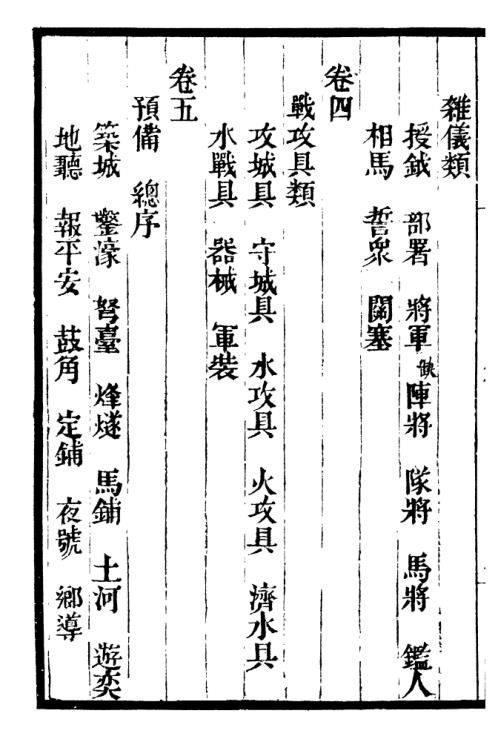 雜儀類
授鉞　部署　將軍缺　陣將　隊將　馬將　鑑人
相馬　誓衆　關塞
卷四
戰攻具類
攻城具　守城具　水攻具　火攻具　濟水具
水戰具　器械　軍裝
卷五
預備　總序
築城　鑿濠　弩臺　烽燧　馬鋪　土河　遊奕
地聽　報平安　鼓角　定鋪　夜號　鄉導